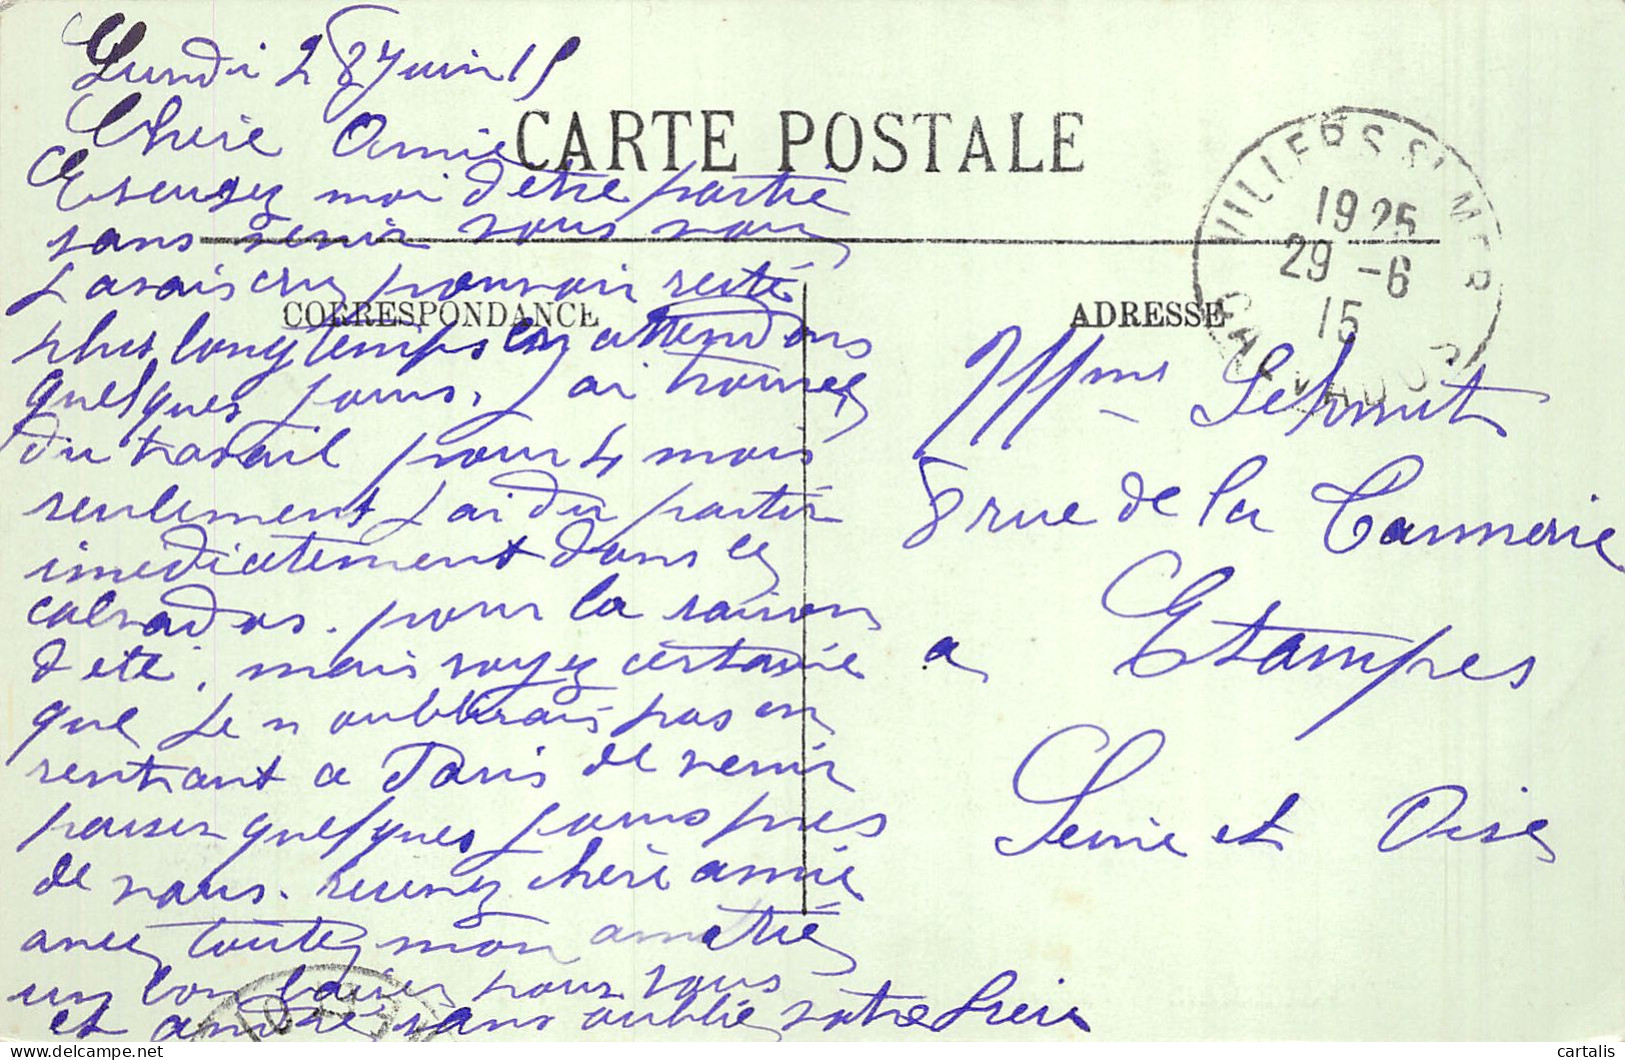 Lundi 28 Juin 15
Chere Amie
CARTE POSTALE
Escusez moi d etre partie
sans venir vous voir
J avais cru pouvoir resté
CORRESPONDANCE
plus longtemps en attendons
quelques jours, J ai trouvez
du travail pour 4 mois
seulement J ai du partir
imediatement dans le
calvados. pour la saison
d eté, mais soyez certaine
que Je n oublirais pas en
rentrant a Paris de venir
passer quelques jours pres
de vous. recevez chère amie
avec toute mon amitié
un bon baiser pour vous
et andré sans oublié votre frère
VILLIERS S MER
1925
29 -6
15
CALVADOS
ADRESSE
Mme Schmit
8 rue de la Tannerie
a Etampes
Seine et Oise
cartalis